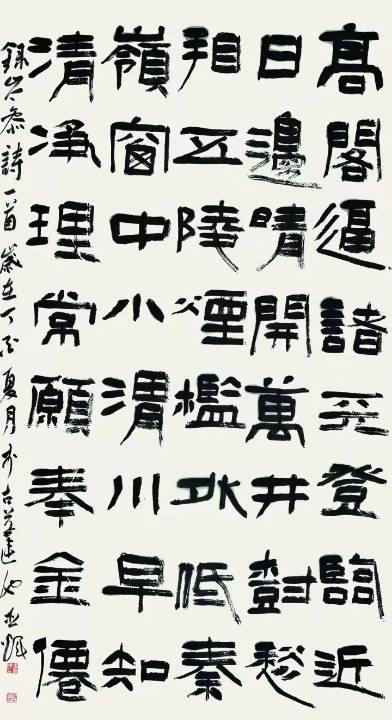 高閣逼諸天登臨近
日邊晴開萬井樹愁
看五陵煙檻外低秦
嶺窗中小渭川早知
清淨理常願奉金僊
錄岑參詩一首歲在丁酉夏月於古